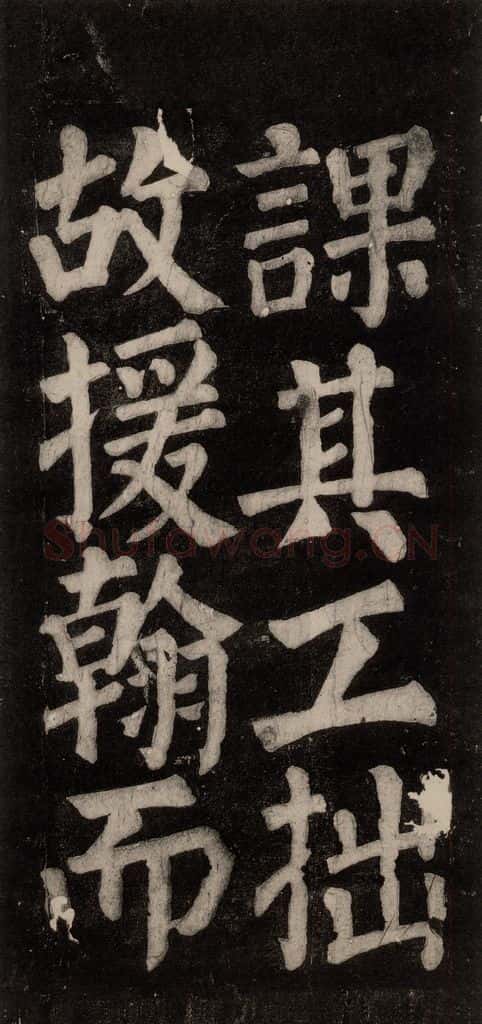 課其工拙
故援翰而
Shufawang.CN